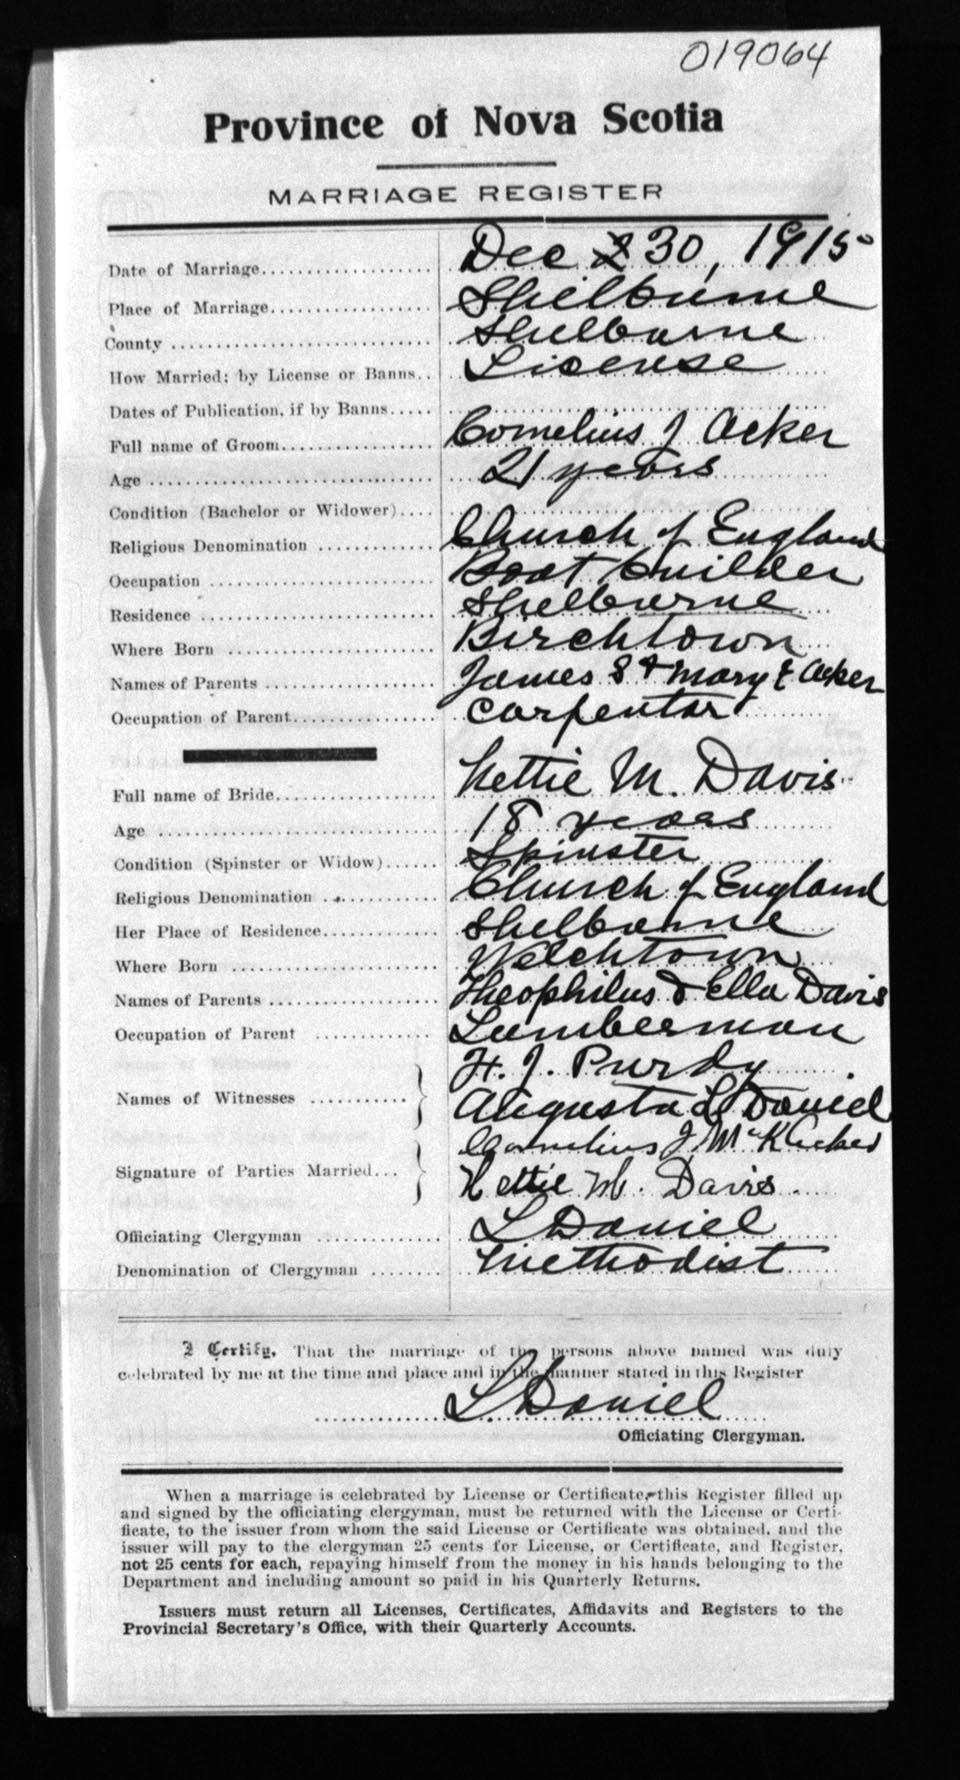 019064
Province of Nova Scotia
MARRIAGE REGISTER
Date of Marriage Dec 30, 1915
Place of Marriage Shelburne
County Shelburne
How Married; by License or Banns License
Dates of Publication, if by Banns
Full name of Groom Cornelius J Acker
Age 21 years
Condition (Bachelor or Widower)
Religious Denomination Church of England
Occupation Boat builder
Residence Shelburne
Where Born Birchtown
Names of Parents James S & Mary E Acker
Occupation of Parent Carpentar
Full name of Bride Nettie M. Davis
Age 18 years
Condition (Spinster or Widow) Spinster
Religious Denomination Church of England
Her Place of Residence Shelburne
Where Born Welchtown
Names of Parents Theophilus & Ella Davis
Occupation of Parent Lumberman
H. J. Purdy
Names of Witnesses Augusta L Daniel
Cornelius J
Signature of Parties Married Nettie M. Davis
Officiating Clergyman L Daniel
Denomination of Clergyman Methodist
I Certify, That the marriage of the persons above named was duly
celebrated by me at the time and place and in the manner stated in this Register
L. Daniel
Officiating Clergyman.
When a marriage is celebrated by License or Certificate, this Register filled up
and signed by the officiating clergyman, must be returned with the License or Certi-
ficate, to the issuer from whom the said License or Certificate was obtained, and the
issuer will pay to the clergyman 25 cents for License, or Certificate, and Register,
not 25 cents for each, repaying himself from the money in his hands belonging to the
Department and including amount so paid in his Quarterly Returns.
Issuers must return all Licenses, Certificates, Affidavits and Registers to the
Provincial Secretary's Office, with their Quarterly Accounts.